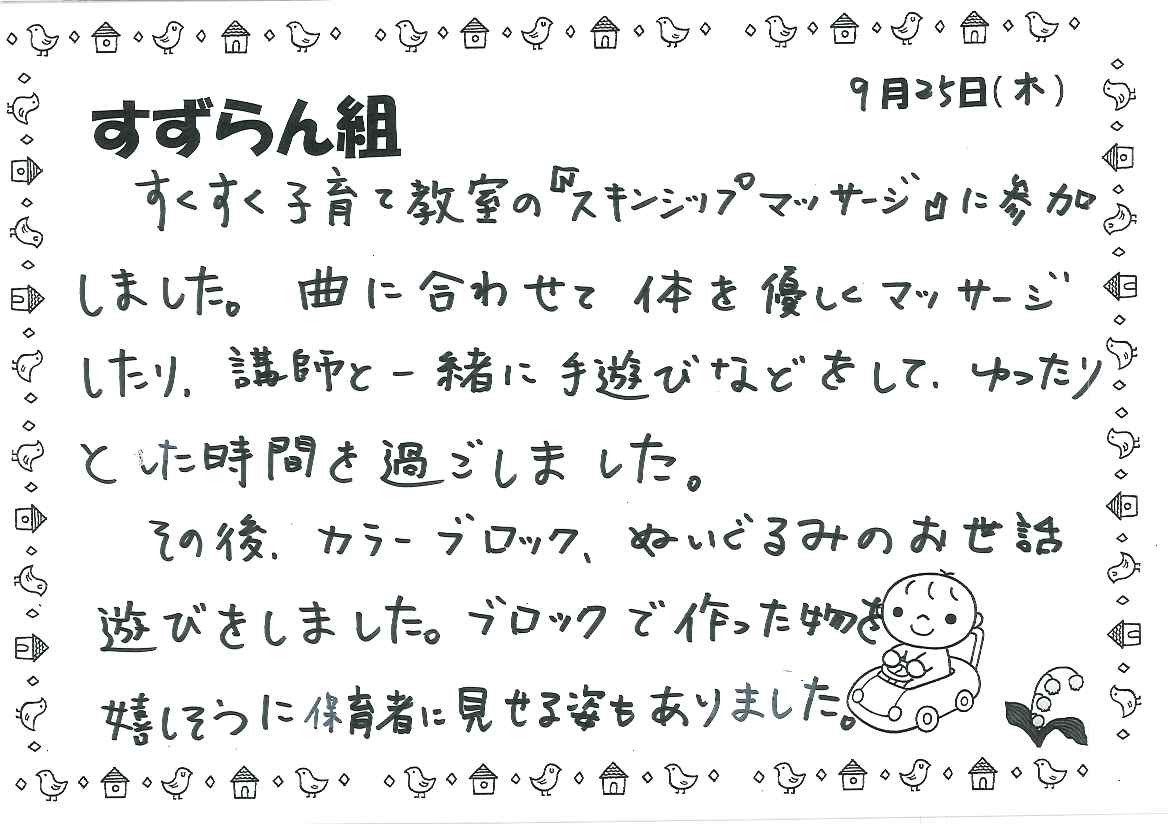 9月25日(木)
すずらん組
すくすく子育て教室の『スキンシップマッサージ』に参加
しました。 曲に合わせて体を優しくマッサージ
したり、講師と一緒に手遊びなどをして、ゆったり
とした時間を過ごしました。
その後、カラーブロック、ぬいぐるみのお世話
遊びをしました。ブロックで作った物を
嬉しそうに保育者に見せる姿もありました。